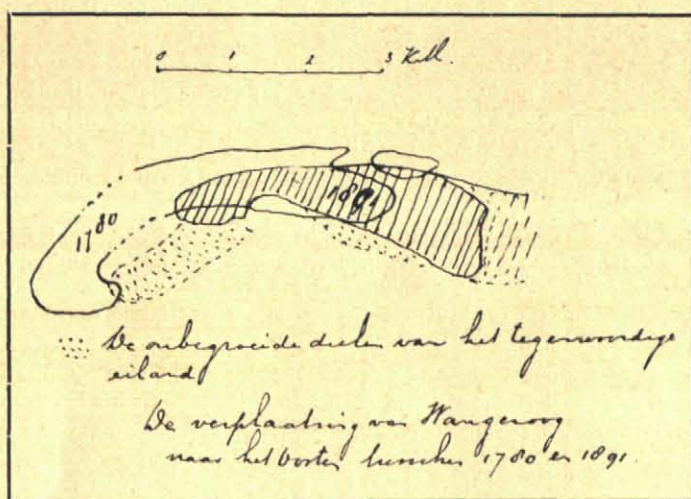 0 1 2 3 Kill.
1891
1780
De onbegroeide deelen van het tegenwoordige
eiland
De verplaatsing van Wangeroog
naar het Oosten tusschen 1780 en 1891.